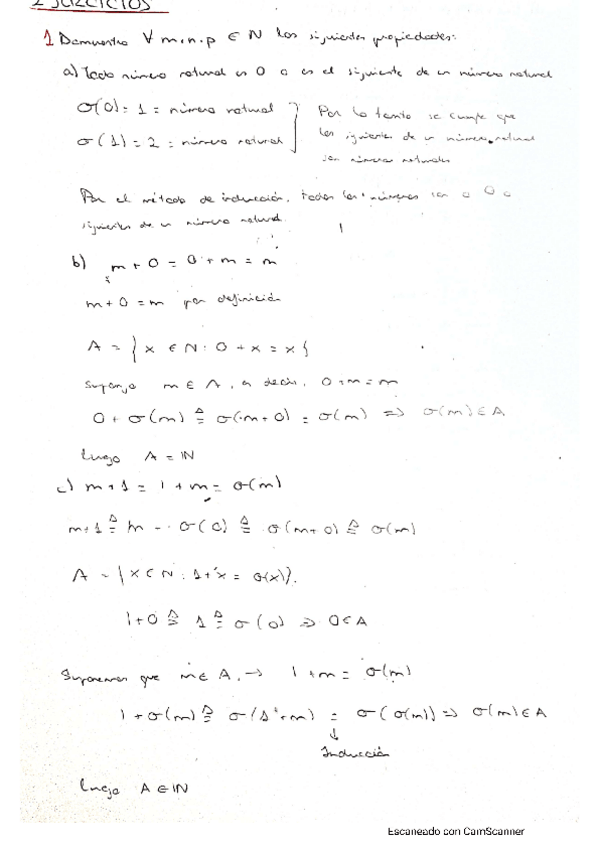 EJERCICIOS
1 Demuestra ∀ m,n,p ∈ N las siguientes propiedades:
a) Todo número natural es 0 o es el siguiente de un número natural
σ(0) = 1 = número natural
σ(1) = 2 = número natural
Por lo tanto se cumple que
los siguientes de un número natural
son números naturales
Por el método de inducción, todos los números son o 0 o
siguientes de un número natural.
b) m + 0 = 0 + m = m
m + 0 = m por definición
A = { x ∈ N : 0 + x = x }
Supongo m ∈ A, es decir, 0 + m = m
0 + σ(m) ≜ σ(m + 0) = σ(m) => σ(m) ∈ A
Luego A = IN
c) m + 1 = 1 + m = σ(m)
m + 1 ≜ m + σ(0) ≜ σ(m+0) ≜ σ(m)
A = { x ∈ N : 1 + x = σ(x) }.
1 + 0 ≜ 1 ≜ σ(0) => 0 ∈ A
Suponemos que m ∈ A, → 1 + m = σ(m)
1 + σ(m) ≜ σ(1 + m) = σ(σ(m)) => σ(m) ∈ A
↓
Inducción
Luego A ∈ IN
Escaneado con CamScanner